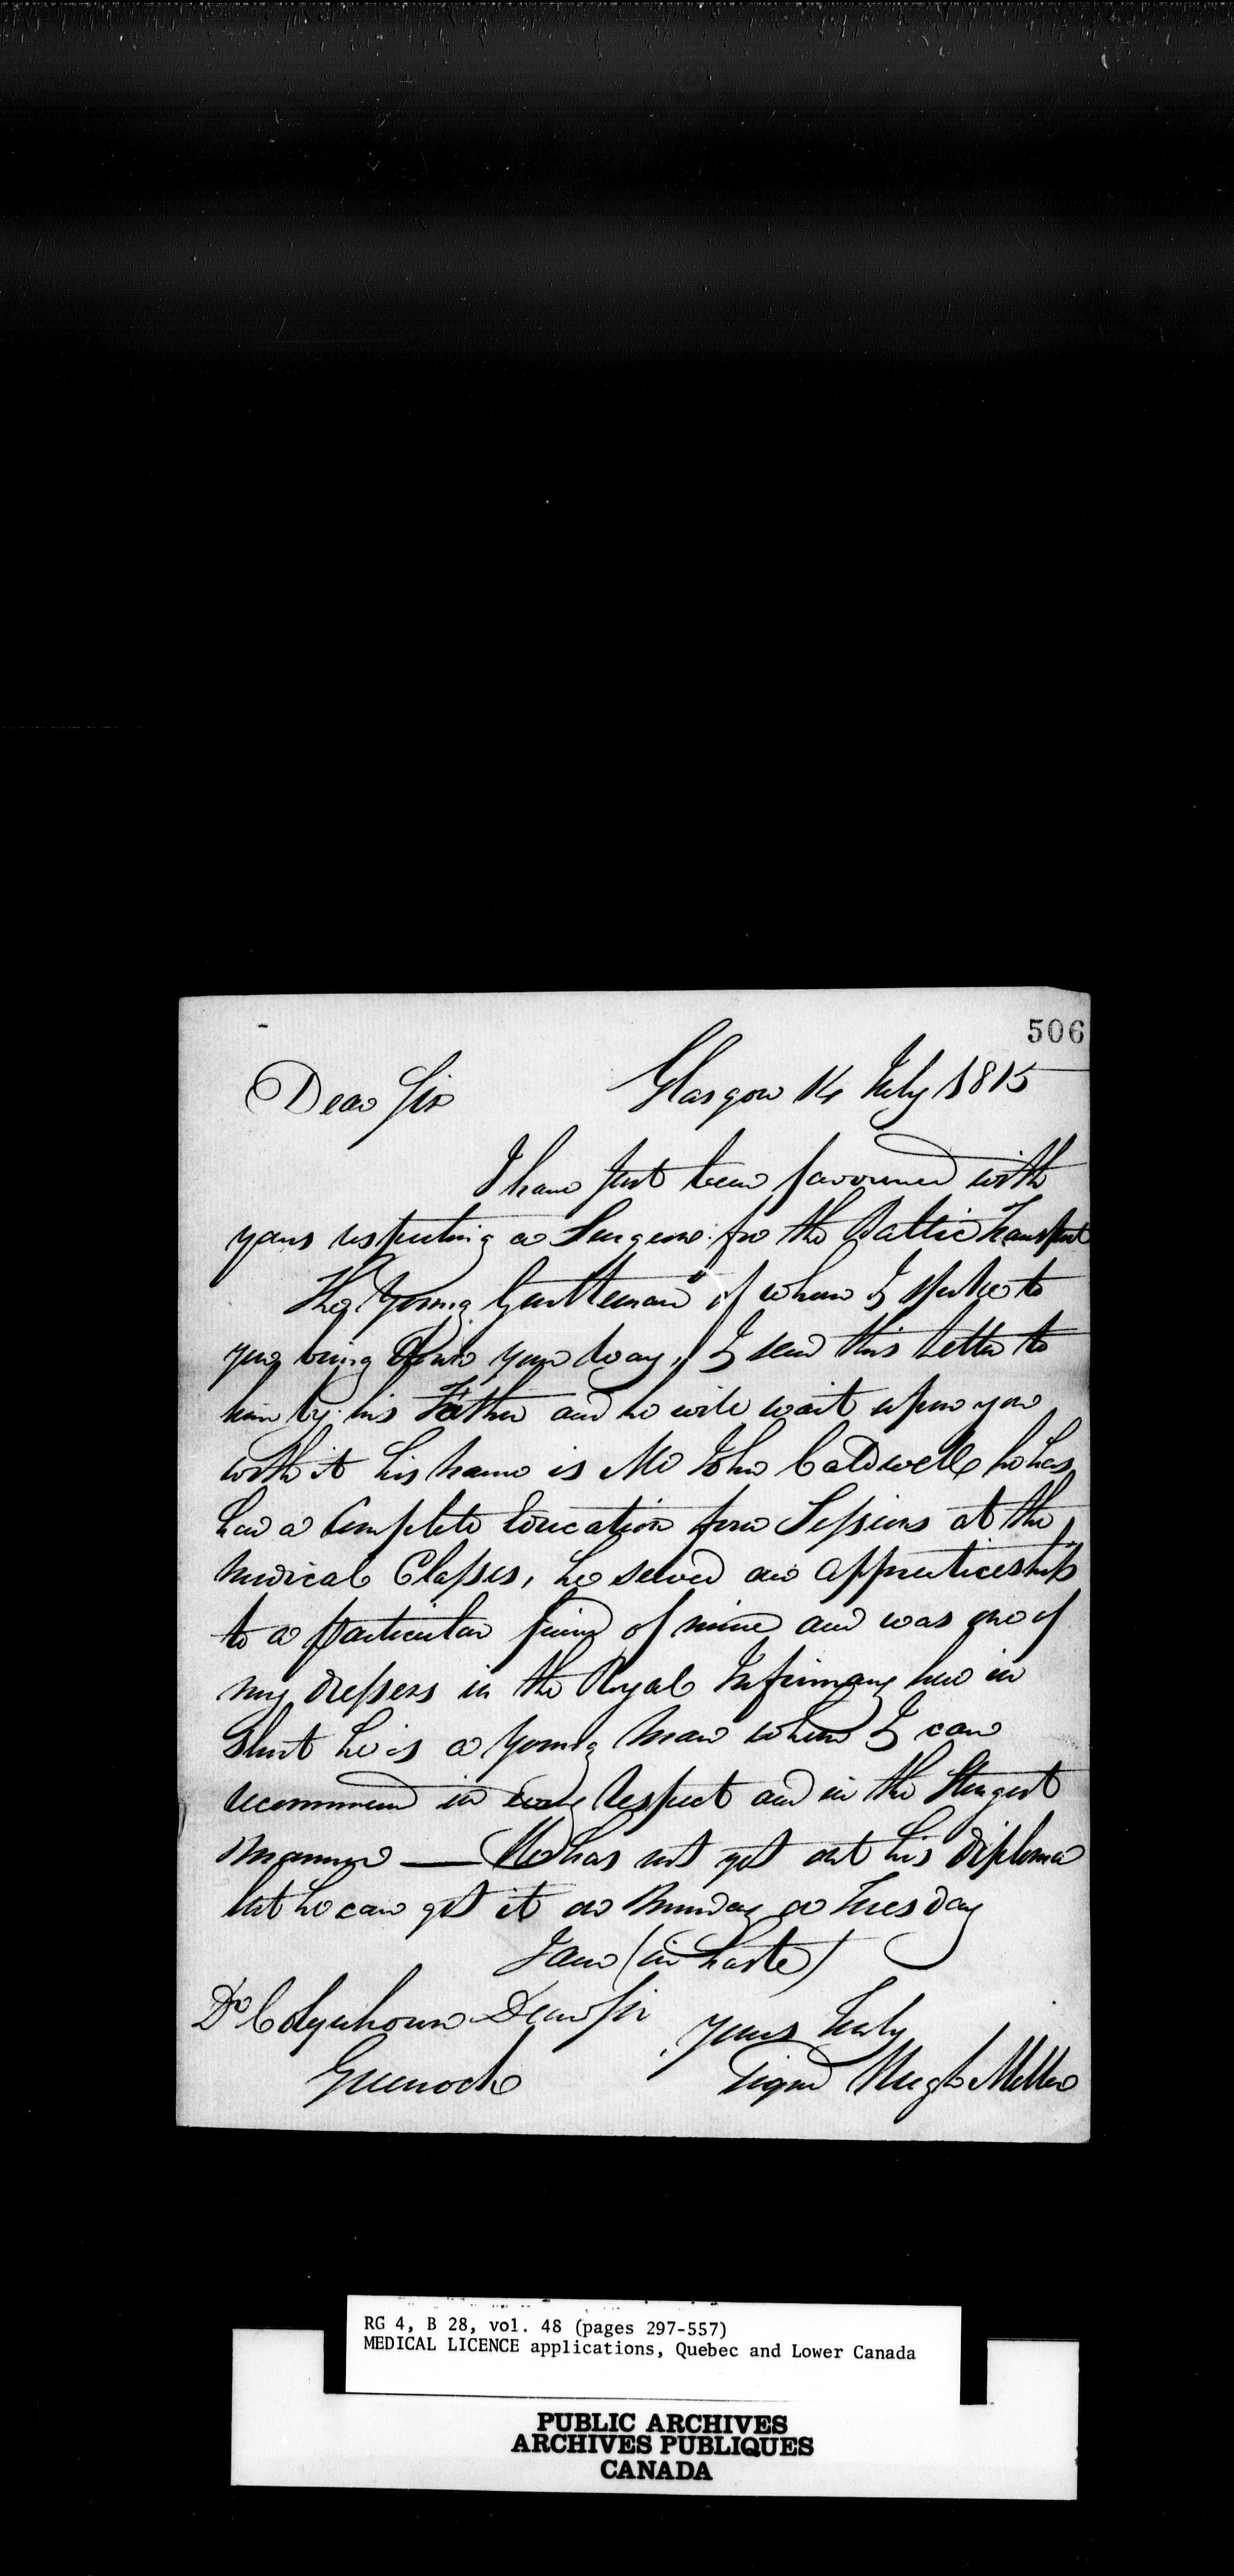 506
Glasgow 14 July 1815
Dear Sir
I have Just been favoured with
yours respecting a Surgeon for the Baltic Transport
The Young Gentleman of whom I spoke to
you being down your way, I send this Letter to
him by his Father and he will wait upon you
with it his name is Mr John Caldwell he has
had a Complete Education four Sessions at the
medical Classes, he served an apprenticeship
to a particular friend of mine and was one of
my dressers in the Royal Infirmary here in
Short he is a young man whom I can
recommend in every respect and in the Strongest
manner — He has not got out his diploma
but he can get it on Monday or Tuesday
I am (in haste)
Dr Colquhoun Dear Sir
Yours truly
Greenock Signed Hugh Miller
RG 4, B 28, vol. 48 (pages 297-557)
MEDICAL LICENCE applications, Quebec and Lower Canada
PUBLIC ARCHIVES
ARCHIVES PUBLIQUES
CANADA